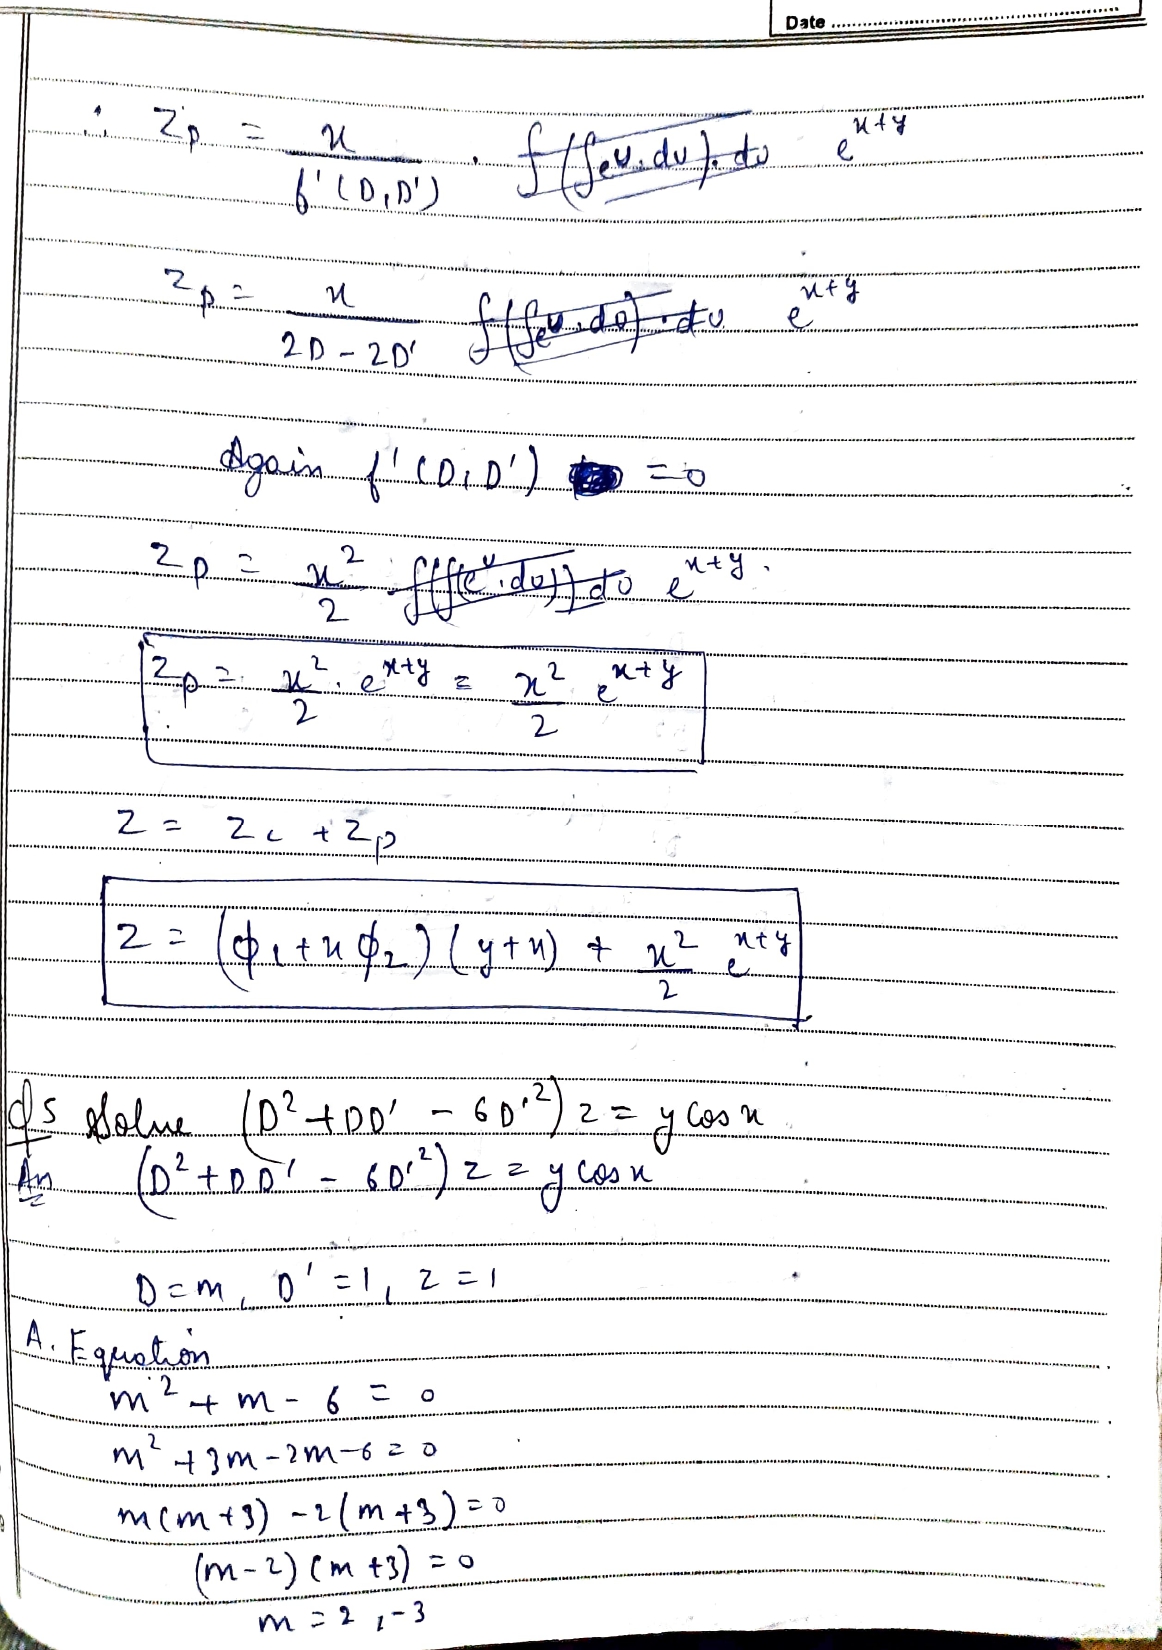 Date
∴ Zp = x / f'(D,D') . ∫(∫eᵘ.du).du e^(x+y)
Zp = x / 2D - 2D' ∫(∫eᵘ.du).du e^(x+y)
Again f'(D,D') = 0
Zp = x²/2 ∫(∫(eᵘ.du)) du e^(x+y).
Zp = x²/2 . e^(x+y) = x²/2 e^(x+y)
Z = Zc + Zp
Z = (ϕ₁ + xϕ₂)(y+x) + x²/2 e^(x+y)
Q5 Solve (D² + DD' - 6D'²) z = y cos x
An (D² + DD' - 6D'²) z = y cos x
D = m, D' = 1, z = 1
A. Equation
m² + m - 6 = 0
m² + 3m - 2m - 6 = 0
m(m+3) - 2(m+3) = 0
(m-2)(m+3) = 0
m = 2, -3